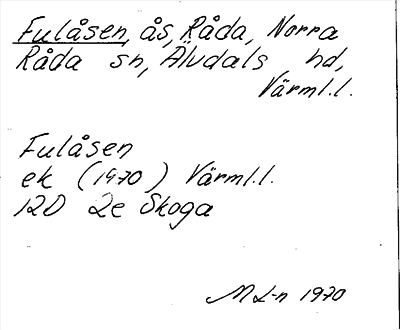 Fulåsen, ås, Råda, Norra
Råda sn, Älvdals hd,
Värml.l.
Fulåsen
ek (1970) Värml.l.
12D 2e Skoga
M L-n 1970